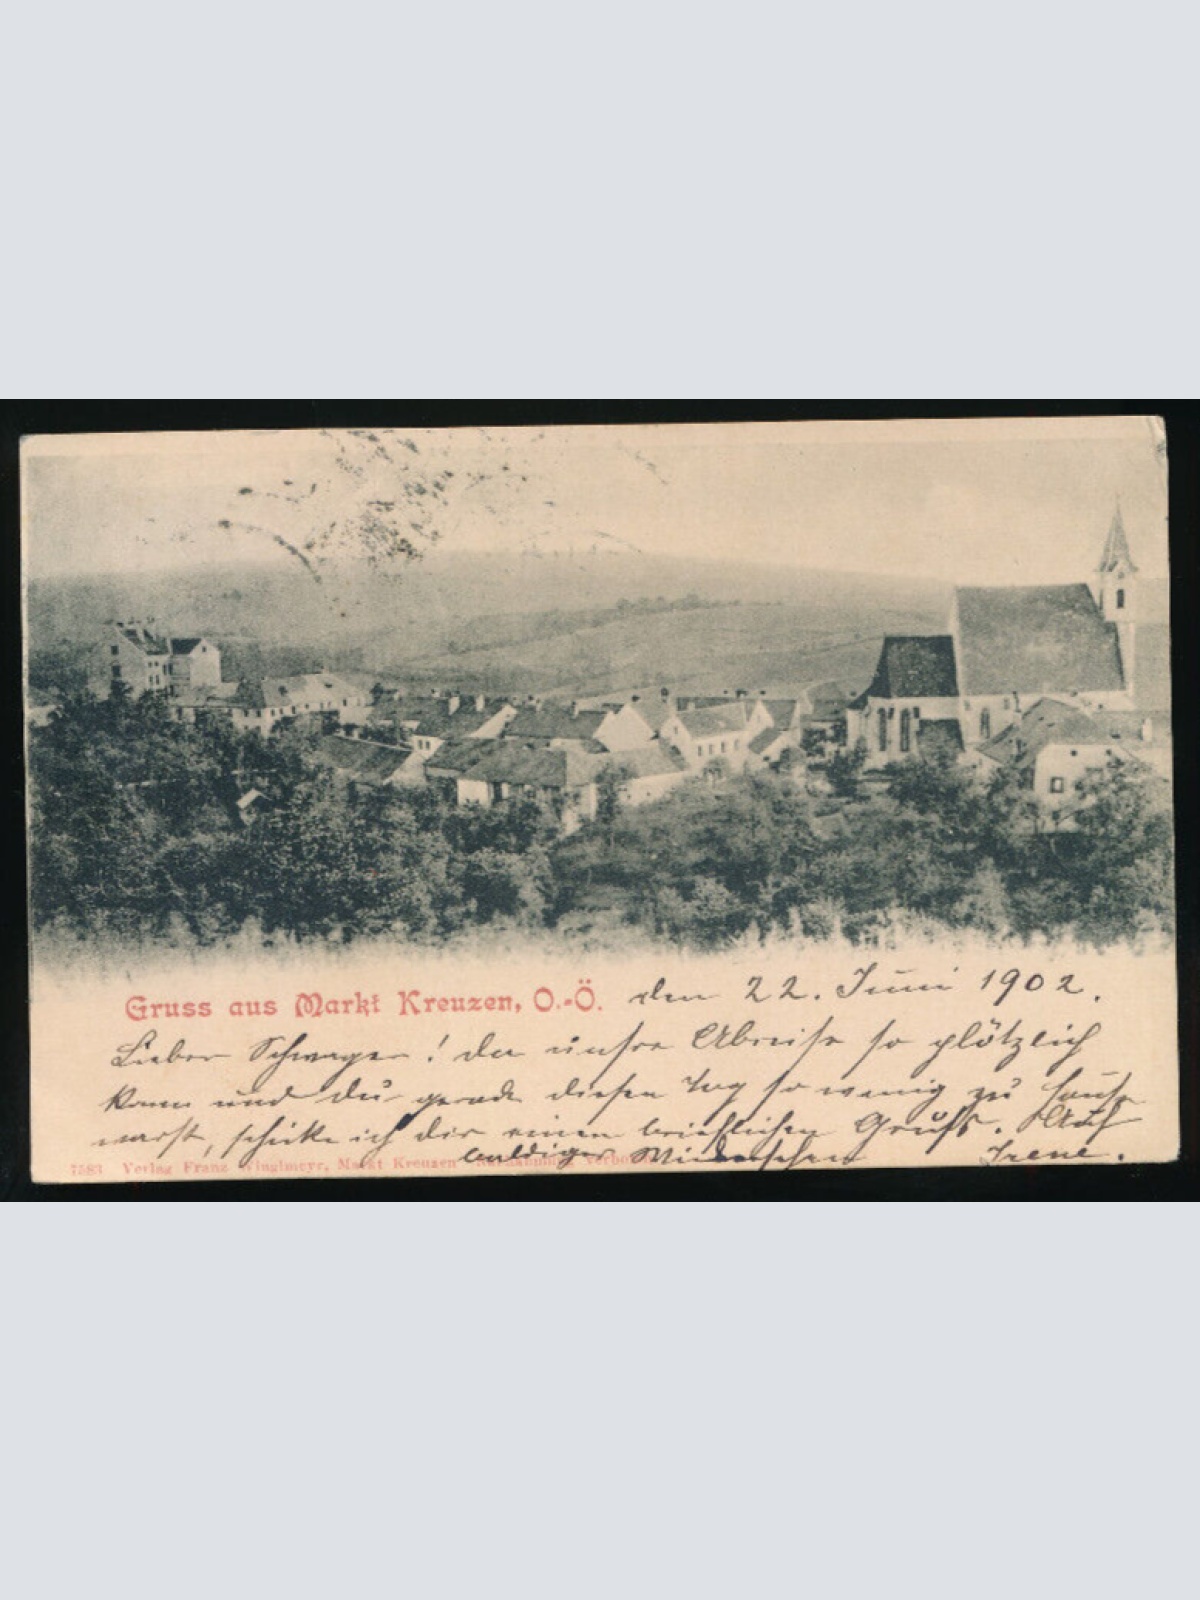 Gruss aus Markt Kreuzen, O.-Ö. den 22. Juni 1902.
Lieber Schwager! da unsre Abreise so plötzlich
kam und du gerade diesen Tag so wenig zu Hause
warst, schicke ich dir einen brieflichen Gruß. Auf
baldiges Wiedersehen Irene.
7583 Verlag Franz Winglmeyr, Markt Kreuzen